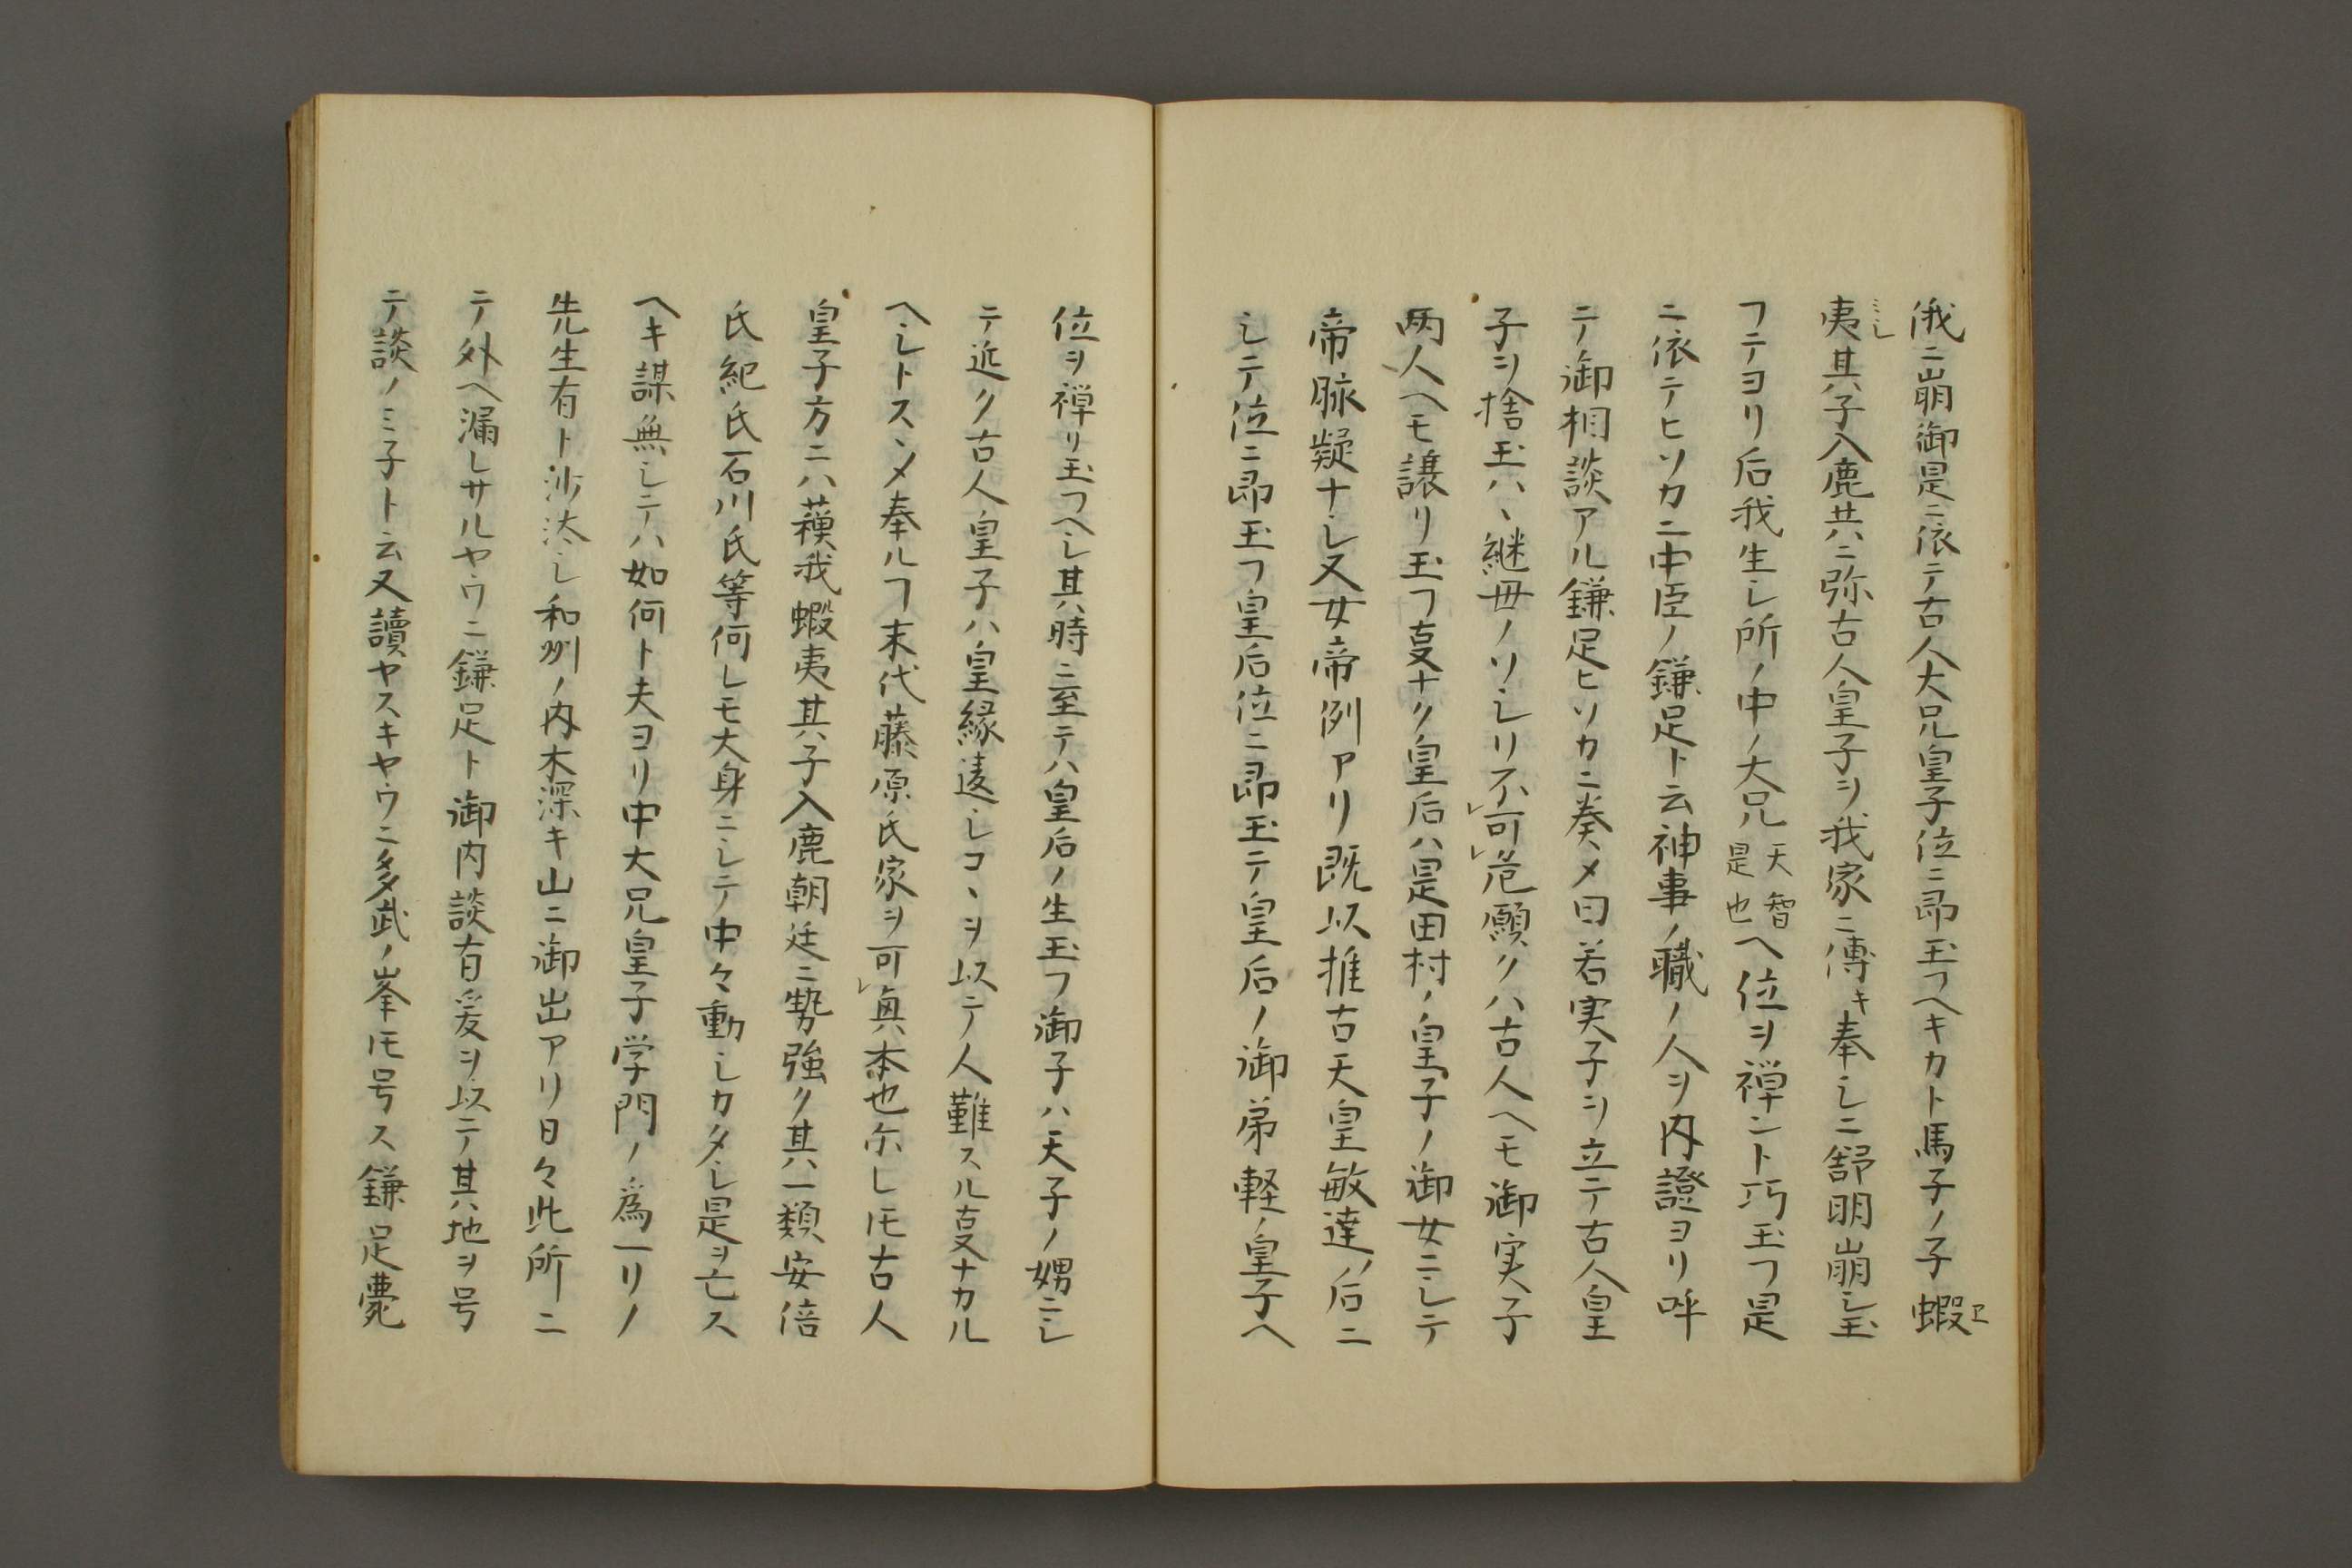 俄ニ崩御是ニ依テ古人大兄皇子位ニ即玉フヘキカト馬子ノ子蝦エ
夷ミシ其子入鹿共ニ弥古人皇子ヲ我家ニ傅キ奉シニ舒明崩シ玉
フテヨリ后我生シ所ノ中ノ大兄天智是也ヘ位ヲ禅ント巧玉フ是
ニ依テヒソカニ中臣ノ鎌足ト云神事ノ職ノ人ヲ内證ヨリ呼
テ御相談アル鎌足ヒソカニ奏メ曰若実子ヲ立テ古人皇
子ヲ捨玉ハヽ継母ノソシリ不レ可レ危願クハ古人ヘモ御実子
両人ヘモ譲リ玉フ㕝ナク皇后ハ是田村ノ皇子ノ御女ニシテ
帝脉疑ナシ又女帝例アリ既以推古天皇敏達ノ后ニ
シテ位ニ即玉フ皇后位ニ即玉テ皇后ノ御弟軽ノ皇子ヘ
位ヲ禅リ玉フヘシ其時ニ至テハ皇后ノ生玉フ御子ハ天子ノ甥ニシ
テ近ク古人皇子ハ皇縁遠シコヽヲ以テ人難スル㕝ナカル
ヘシトスヽメ奉ルヿ末代藤原氏家ヲ可レ興本也尓シ𪜈古人
皇子方ニハ蘓我蝦夷其子入鹿朝廷ニ勢強ク其一類安倍
氏紀氏石川氏等何レモ大身ニシテ中々動シカタシ是ヲ亡ス
ヘキ謀無シテハ如何ト夫ヨリ中大兄皇子学門ノ為一リノ
先生有ト沙汰シ和州ノ内木深キ山ニ御出アリ日々此所ニ
テ外ヘ漏レサルヤウニ鎌足ト御内談有爰ヲ以テ其地ヲ号
テ談ノミ子ト云又讀ヤスキヤウニ多武ノ峯𪜈号ス鎌足薨